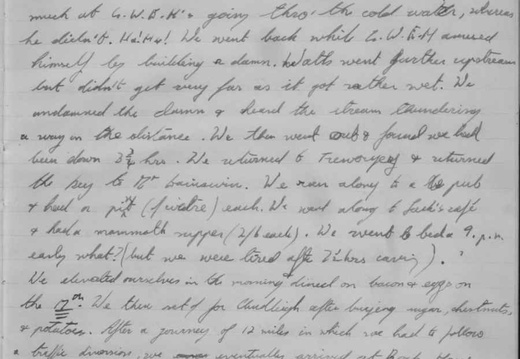 much at G.W.B.H's going thro' the cold water, whereas
he didn't. Ha! Ha! We went back while G.W.B.H amused
himself by building a dam. went further upstream
but didn't get very far as it got rather wet. We
undammed the dam & heard the stream thundering
away in the distance. We then went out & found we had
been down 3¾ hrs. We returned to & returned
the key to Mr. We ran along to a pub
& had a pint each. We went along to café
& had a mammoth supper (2/6 each). We went to bed a 9. p.m.
early what? (but we were tired after hrs caving).
We elevated ourselves in the morning dined on bacon & eggs on
the We then set of for Chudleigh after buying sugar, chestnuts,
& potatoes. After a journey of 12 miles in which we had to follow
a traffic diversion, we eventually arrived at